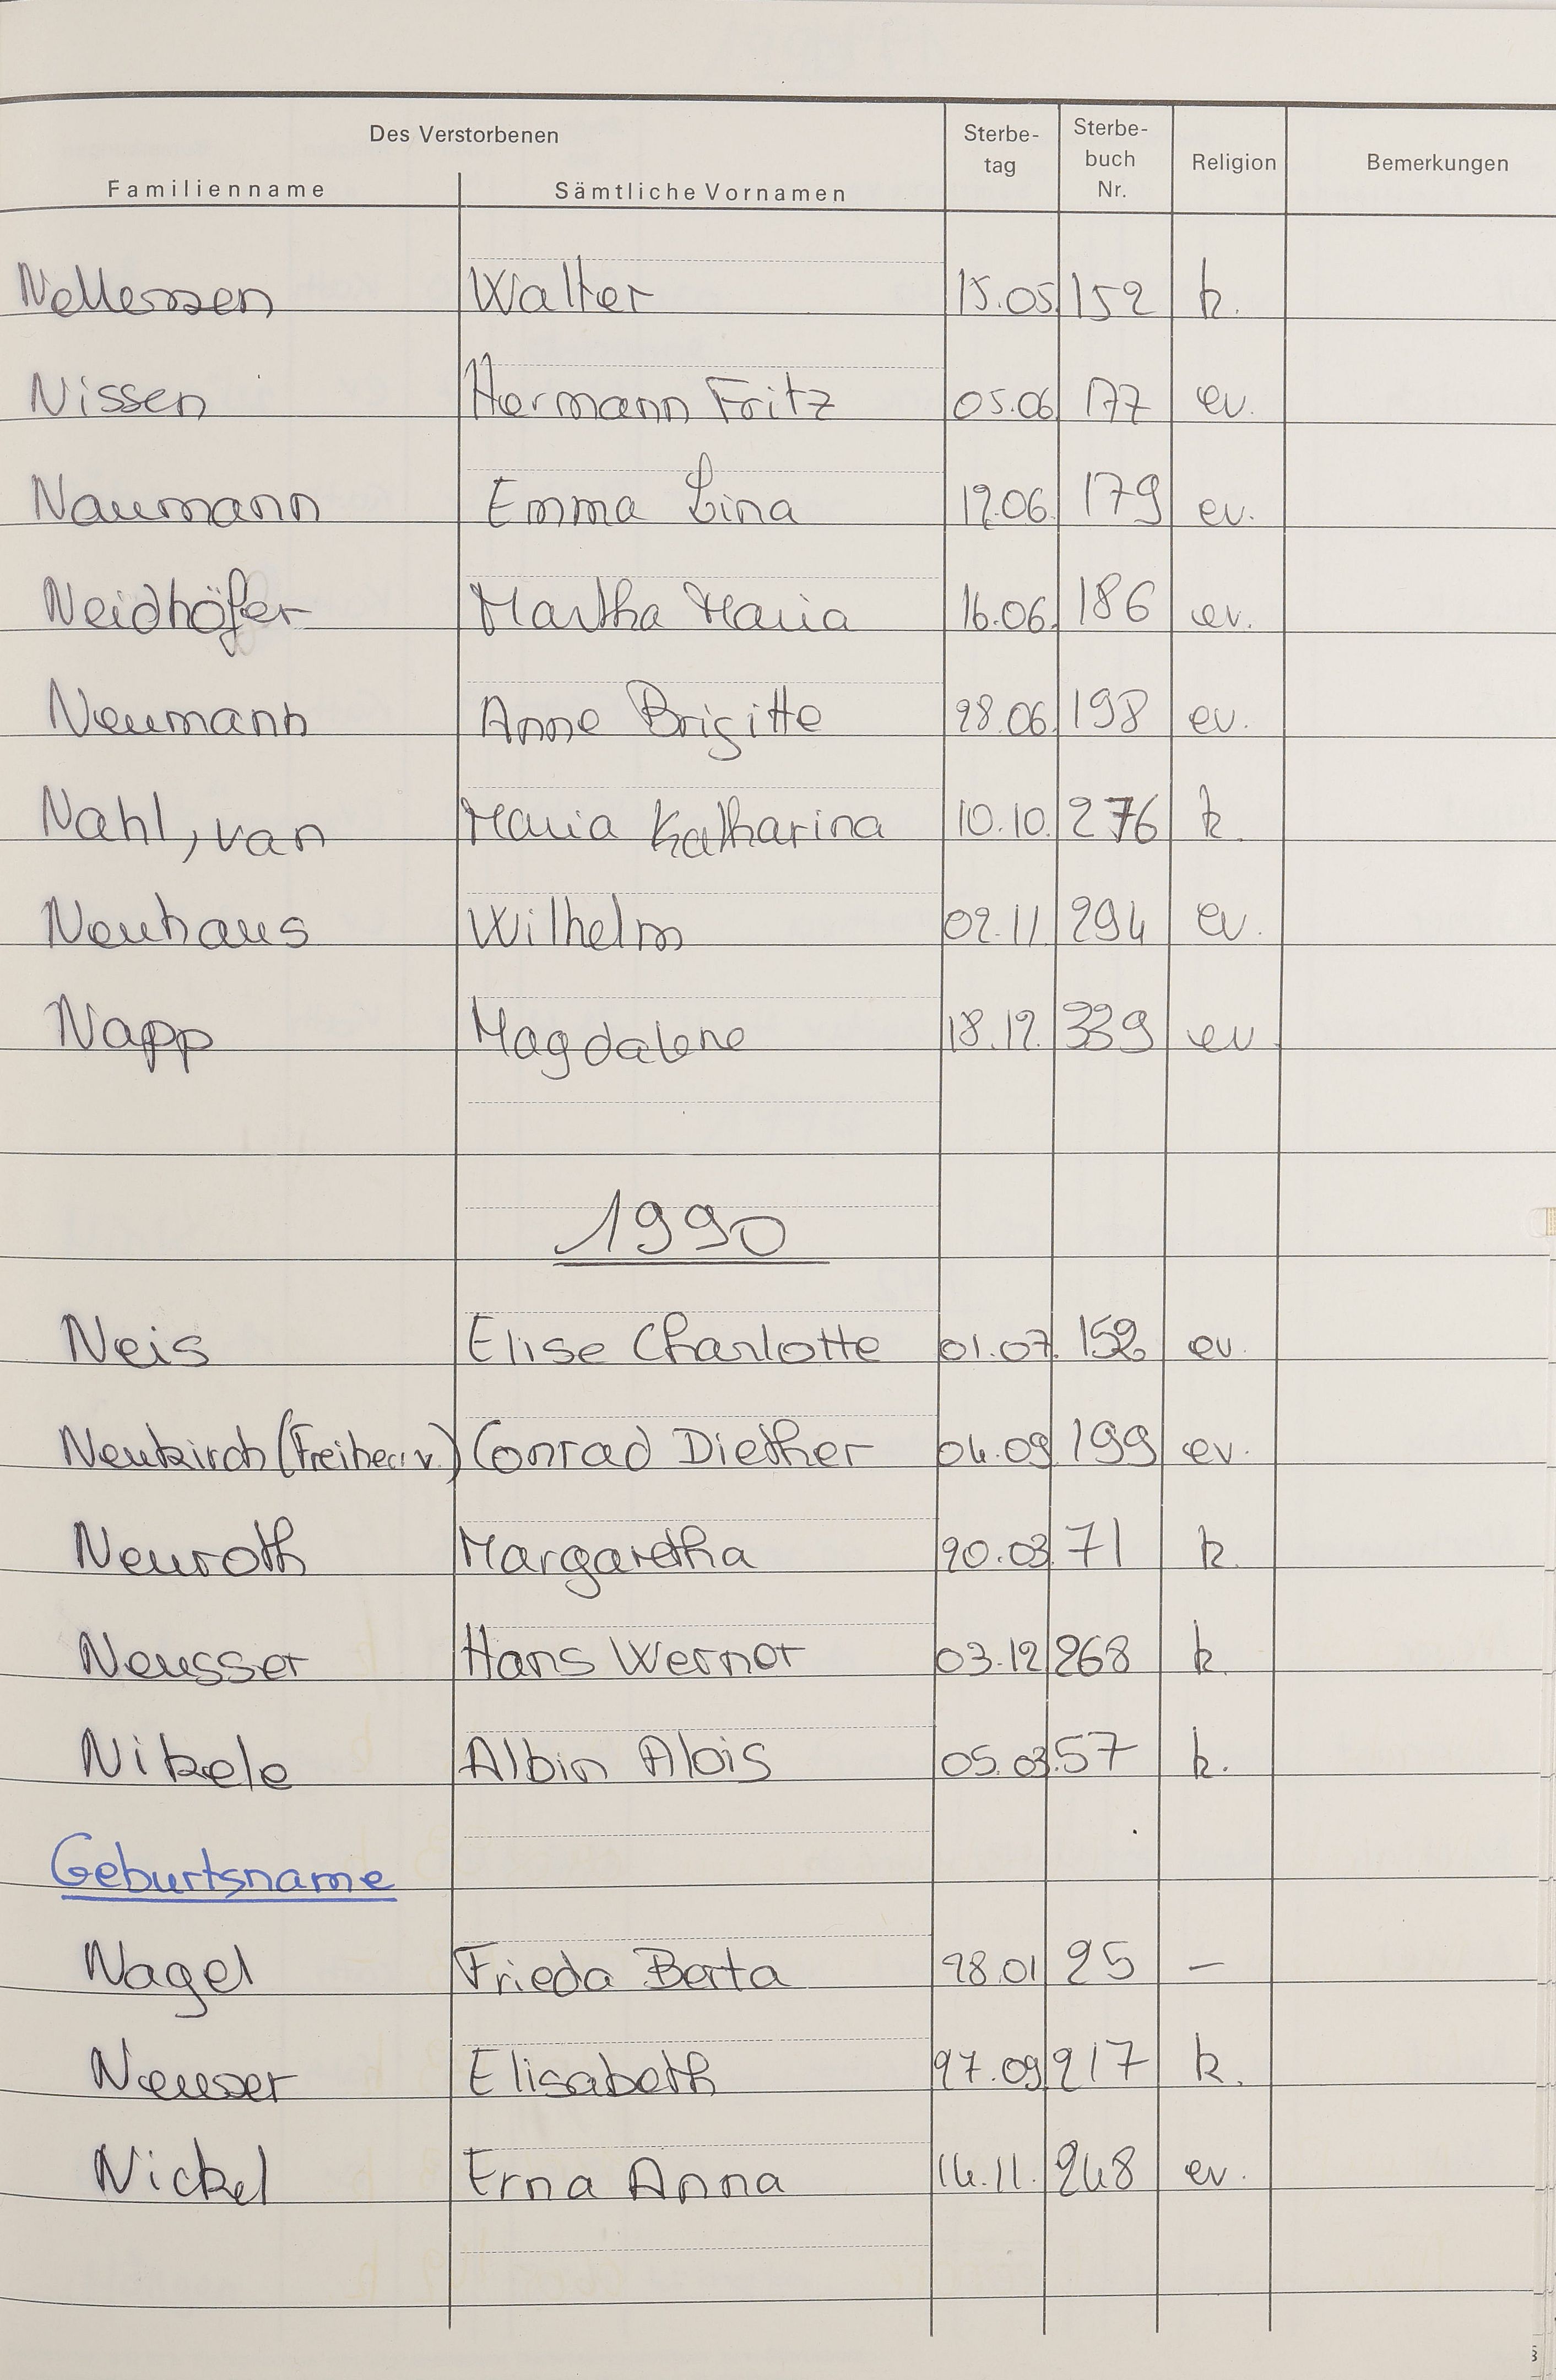 Des Verstorbenen
Familienname Sämtliche Vornamen Sterbe-tag Sterbe-buch Nr. Religion Bemerkungen
Nellessen Walter 15.05. 152 k.
Nissen Hermann Fritz 05.06. 177 ev.
Naumann Emma Lina 12.06. 179 ev.
Neidhöfer Martha Maria 16.06. 186 ev.
Neumann Anne Brigitte 28.06. 198 ev.
Nahl, van Maria Katharina 10.10. 276 k.
Neuhaus Wilhelm 02.11. 294 ev.
Napp Magdalene 18.12. 339 ev.
1990
Neis Elise Charlotte 01.07. 152 ev.
Neukirch (Freiherr v.) Conrad Diether 04.09. 199 ev.
Neuroth Margaretha 20.03. 71 k.
Neusser Hans Werner 03.12. 268 k.
Nikele Albin Alois 05.03. 57 k.
Geburtsname
Nagel Frieda Berta 28.01. 25 —
Neuser Elisabeth 27.09. 217 k.
Nickel Erna Anna 14.11. 248 ev.